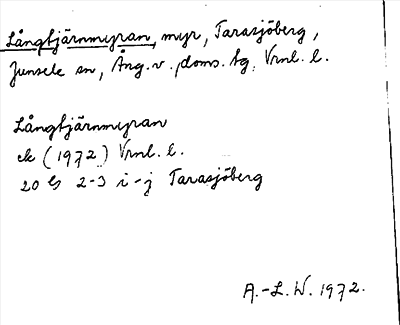 Långtjärnmyran, myr, Tarasjöberg,
Junsele sn, Ång. v. doms. tg. Vrnl. l.
Långtjärnmyran
ek (1972) Vrnl. l.
20 G 2-3 i-j Tarasjöberg
A.-L. W. 1972.